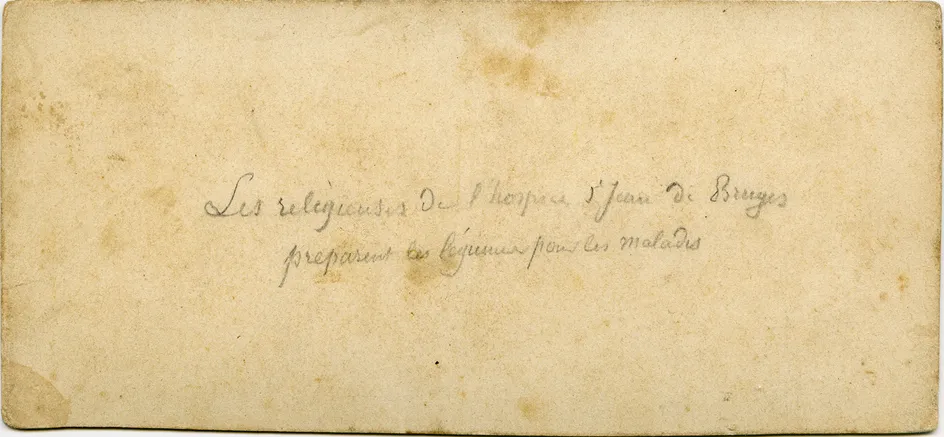 Les religieuses de l'hospice St Jean de Bruges
preparent les légumes pour les malades